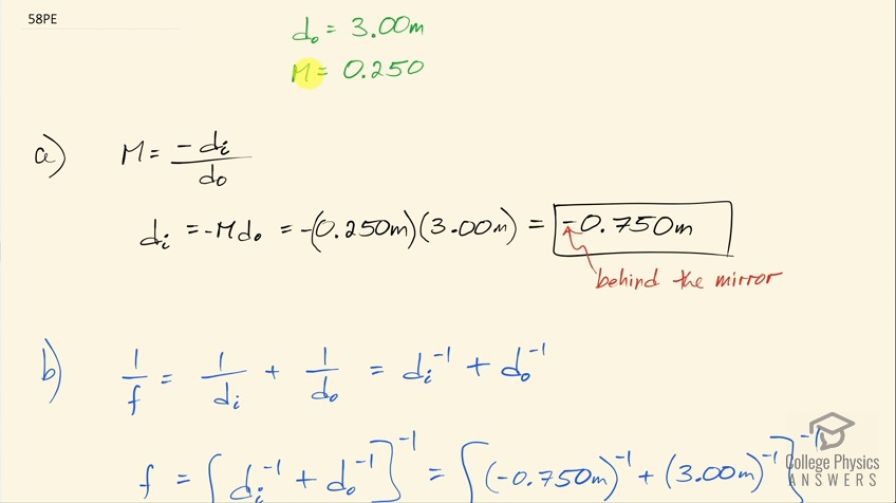 58PE
d₀ = 3.00m
M = 0.250
a) M = -dᵢ/d₀
dᵢ = -Md₀ = -(0.250m)(3.00m) = -0.750m
behind the mirror
b) 1/f = 1/dᵢ + 1/d₀ = dᵢ⁻¹ + d₀⁻¹
f = [dᵢ⁻¹ + d₀⁻¹]⁻¹ = [(-0.750m)⁻¹ + (3.00m)⁻¹]⁻¹
College Physics
ANSWERS